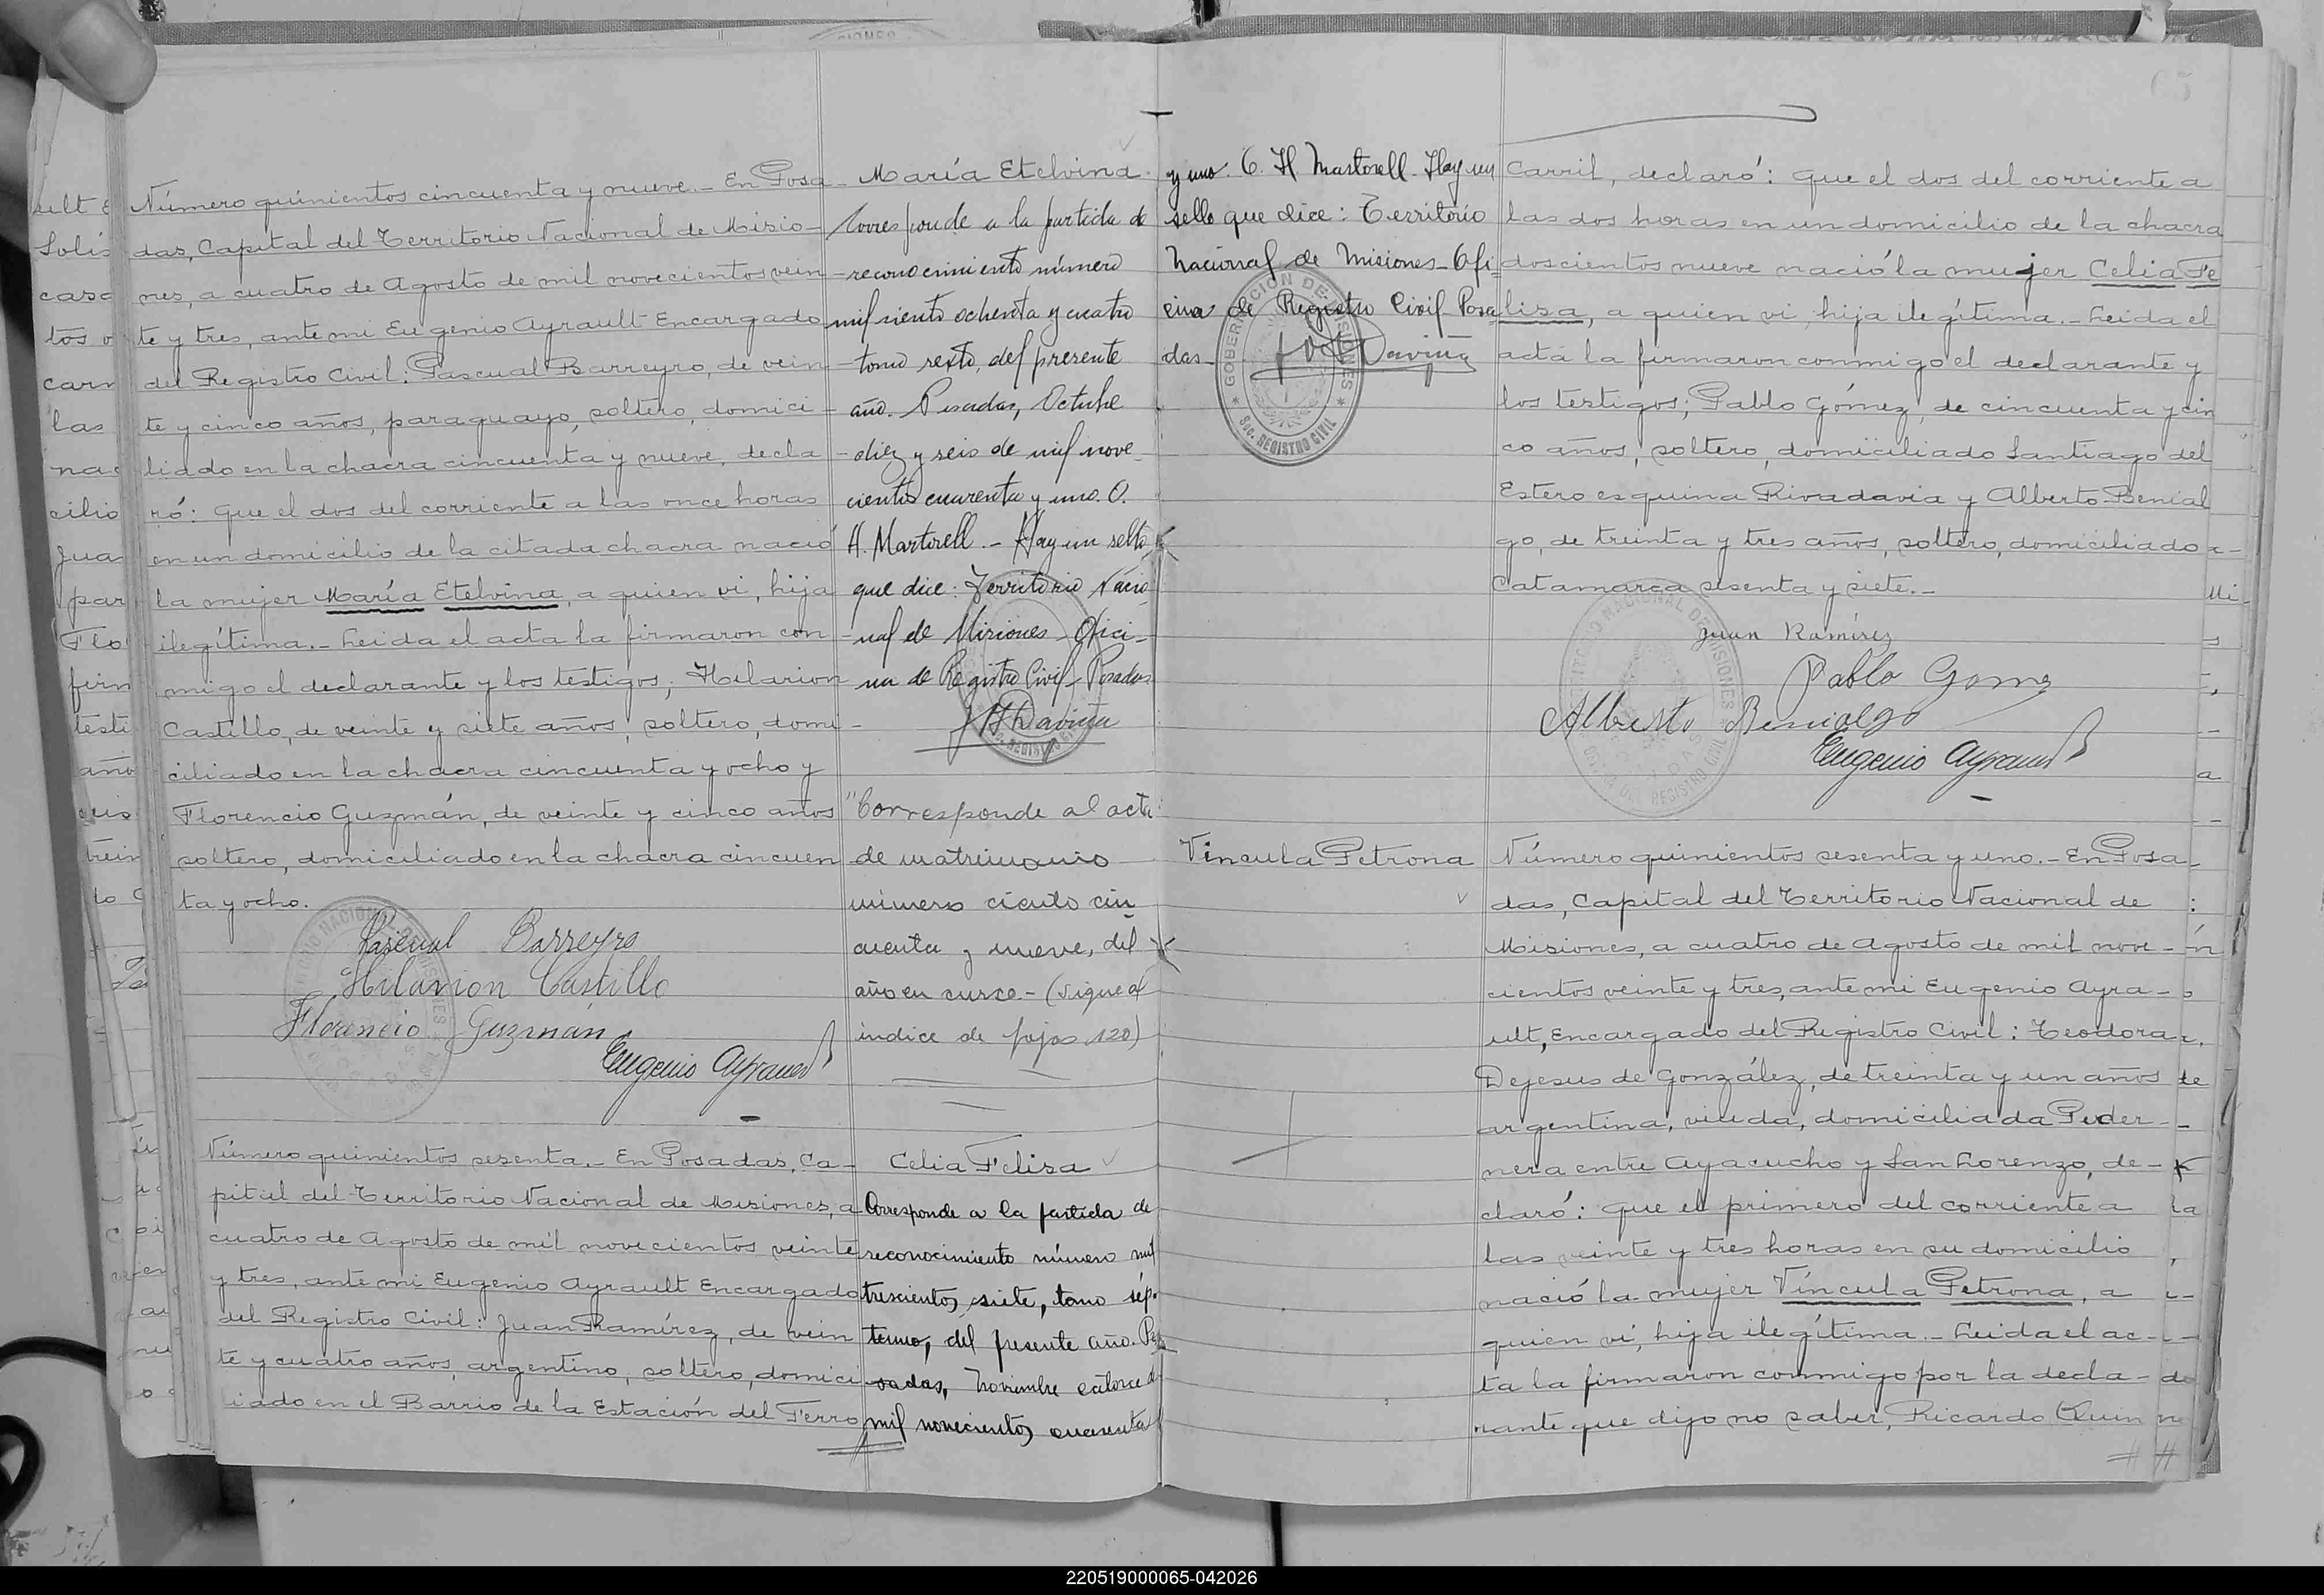 Número quinientos cincuenta y nueve.- En Posa-
das, Capital del Territorio Nacional de Misio-
nes, a cuatro de Agosto de mil novecientos vein-
te y tres, ante mi Eugenio Ayrault Encargado
del Registro Civil: Pascual Barreyro, de vein-
te y cinco años, paraguayo, soltero, domici-
liado en la chacra cincuenta y nueve, decla-
ró: Que el dos del corriente a las once horas
en un domicilio de la citada chacra nació
la mujer María Etelvina, a quien vi, hija
ilegítima.- Leida el acta la firmaron con-
migo el declarante y los testigos; Hilarion
Castillo, de veinte y siete años, soltero, domi-
ciliado en la chacra cincuenta y ocho y
Florencio Guzmán, de veinte y cinco años
soltero, domiciliado en la chacra cincuen
ta y ocho.
Pascual Barreyro
Hilarion Castillo
Florencio Guzmán
Eugenio Ayrault
Número quinientos sesenta.- En Posadas, Ca-
pital del Territorio Nacional de Misiones, a
cuatro de Agosto de mil novecientos veinte
y tres, ante mi Eugenio Ayrault Encargado
del Registro Civil: Juan Ramírez, de vein
te y cuatro años, argentino, soltero, domici
liado en el Barrio de la Estación del Ferro
María Etelvina
Corresponde a la partida de
reconocimiento número
mil ciento ochenta y cuatro
tomo sexto, del presente
año. Posadas, Octubre
diez y seis de mil nove-
cientos cuarenta y uno. O.
H. Martorell.- Hay un sello
que dice: Territorio Nacio
nal de Misiones - Ofici-
na de Registro Civil - Posadas
J H Daviña
"Corresponde al acta
de matrimonio
número ciento cin
cuenta y nueve, del
año en curso.- (sigue al
índice de fojas 120)
Celia Felisa
Corresponde a la partida de
reconocimiento número mil
trescientos siete, tomo sép-
timo, del presente año. Po
sadas, Noviembre catorce de
mil novecientos cuarenta
y uno. O. H Martorell. Hay un
sello que dice: Territorio
Nacional de Misiones - Ofi-
cina de Registro Civil - Posa
das-
J H Daviña
GOBERNACIÓN DE MISIONES
Sec. REGISTRO CIVIL
65
Carril, declaró: Que el dos del corriente a
las dos horas en un domicilio de la chacra
doscientos nueve nació la mujer Celia Fe
lisa, a quien vi, hija ilegítima.- Leida el
acta la firmaron conmigo el declarante y
los testigos; Pablo Gómez, de cincuenta y cin
co años, soltero, domiciliado Santiago del
Estero esquina Rivadavia y Alberto Benial
go, de treinta y tres años, soltero, domiciliado
Catamarca sesenta y siete.-
Juan Ramírez
Pablo Gomez
Alberto Benialgo
Eugenio Ayrault
Víncula Petrona
Número quinientos sesenta y uno.- En Posa-
das, Capital del Territorio Nacional de
Misiones, a cuatro de Agosto de mil nove-
cientos veinte y tres, ante mi Eugenio Ayra-
ult, Encargado del Registro Civil: Teodora
Dejesus de González, de treinta y un años
argentina, viuda, domiciliada Peder-
nera entre Ayacucho y San Lorenzo, de-
claró: Que el primero del corriente a
las veinte y tres horas en su domicilio
nació la mujer Víncula Petrona, a
quien ví, hija ilegítima.- Leida el ac-
ta la firmaron conmigo por la decla-
rante que dijo no saber, Ricardo Quin
220519000065-042026